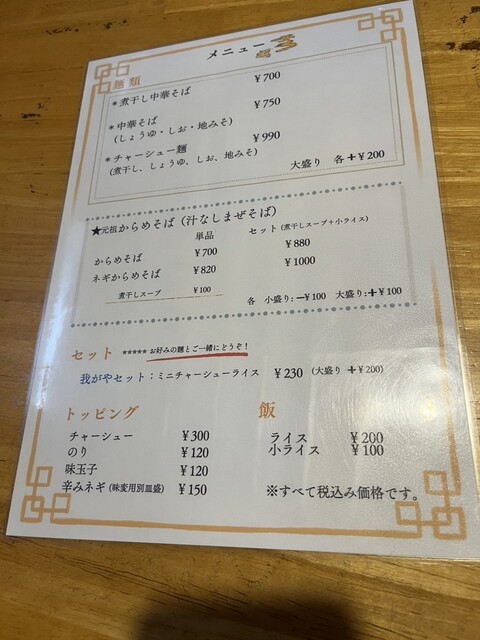 メニュー
麺類
*煮干し中華そば ¥700
*中華そば ¥750
(しょうゆ・しお・地みそ)
*チャーシュー麺 ¥990
(煮干し、しょうゆ、しお、地みそ)
大盛り 各+¥200
★元祖からめそば(汁なしまぜそば)
単品 セット(煮干しスープ+小ライス)
からめそば ¥700 ¥880
ネギからめそば ¥820 ¥1000
煮干しスープ ¥100
各 小盛り:ー¥100 大盛り:+¥100
セット ★★★★★ お好みの麺とご一緒にどうぞ!
我がやセット:ミニチャーシューライス ¥230 (大盛り +¥200)
トッピング
チャーシュー ¥300
のり ¥120
味玉子 ¥120
辛みネギ(味変用別皿盛) ¥150
飯
ライス ¥200
小ライス ¥100
※すべて税込み価格です。